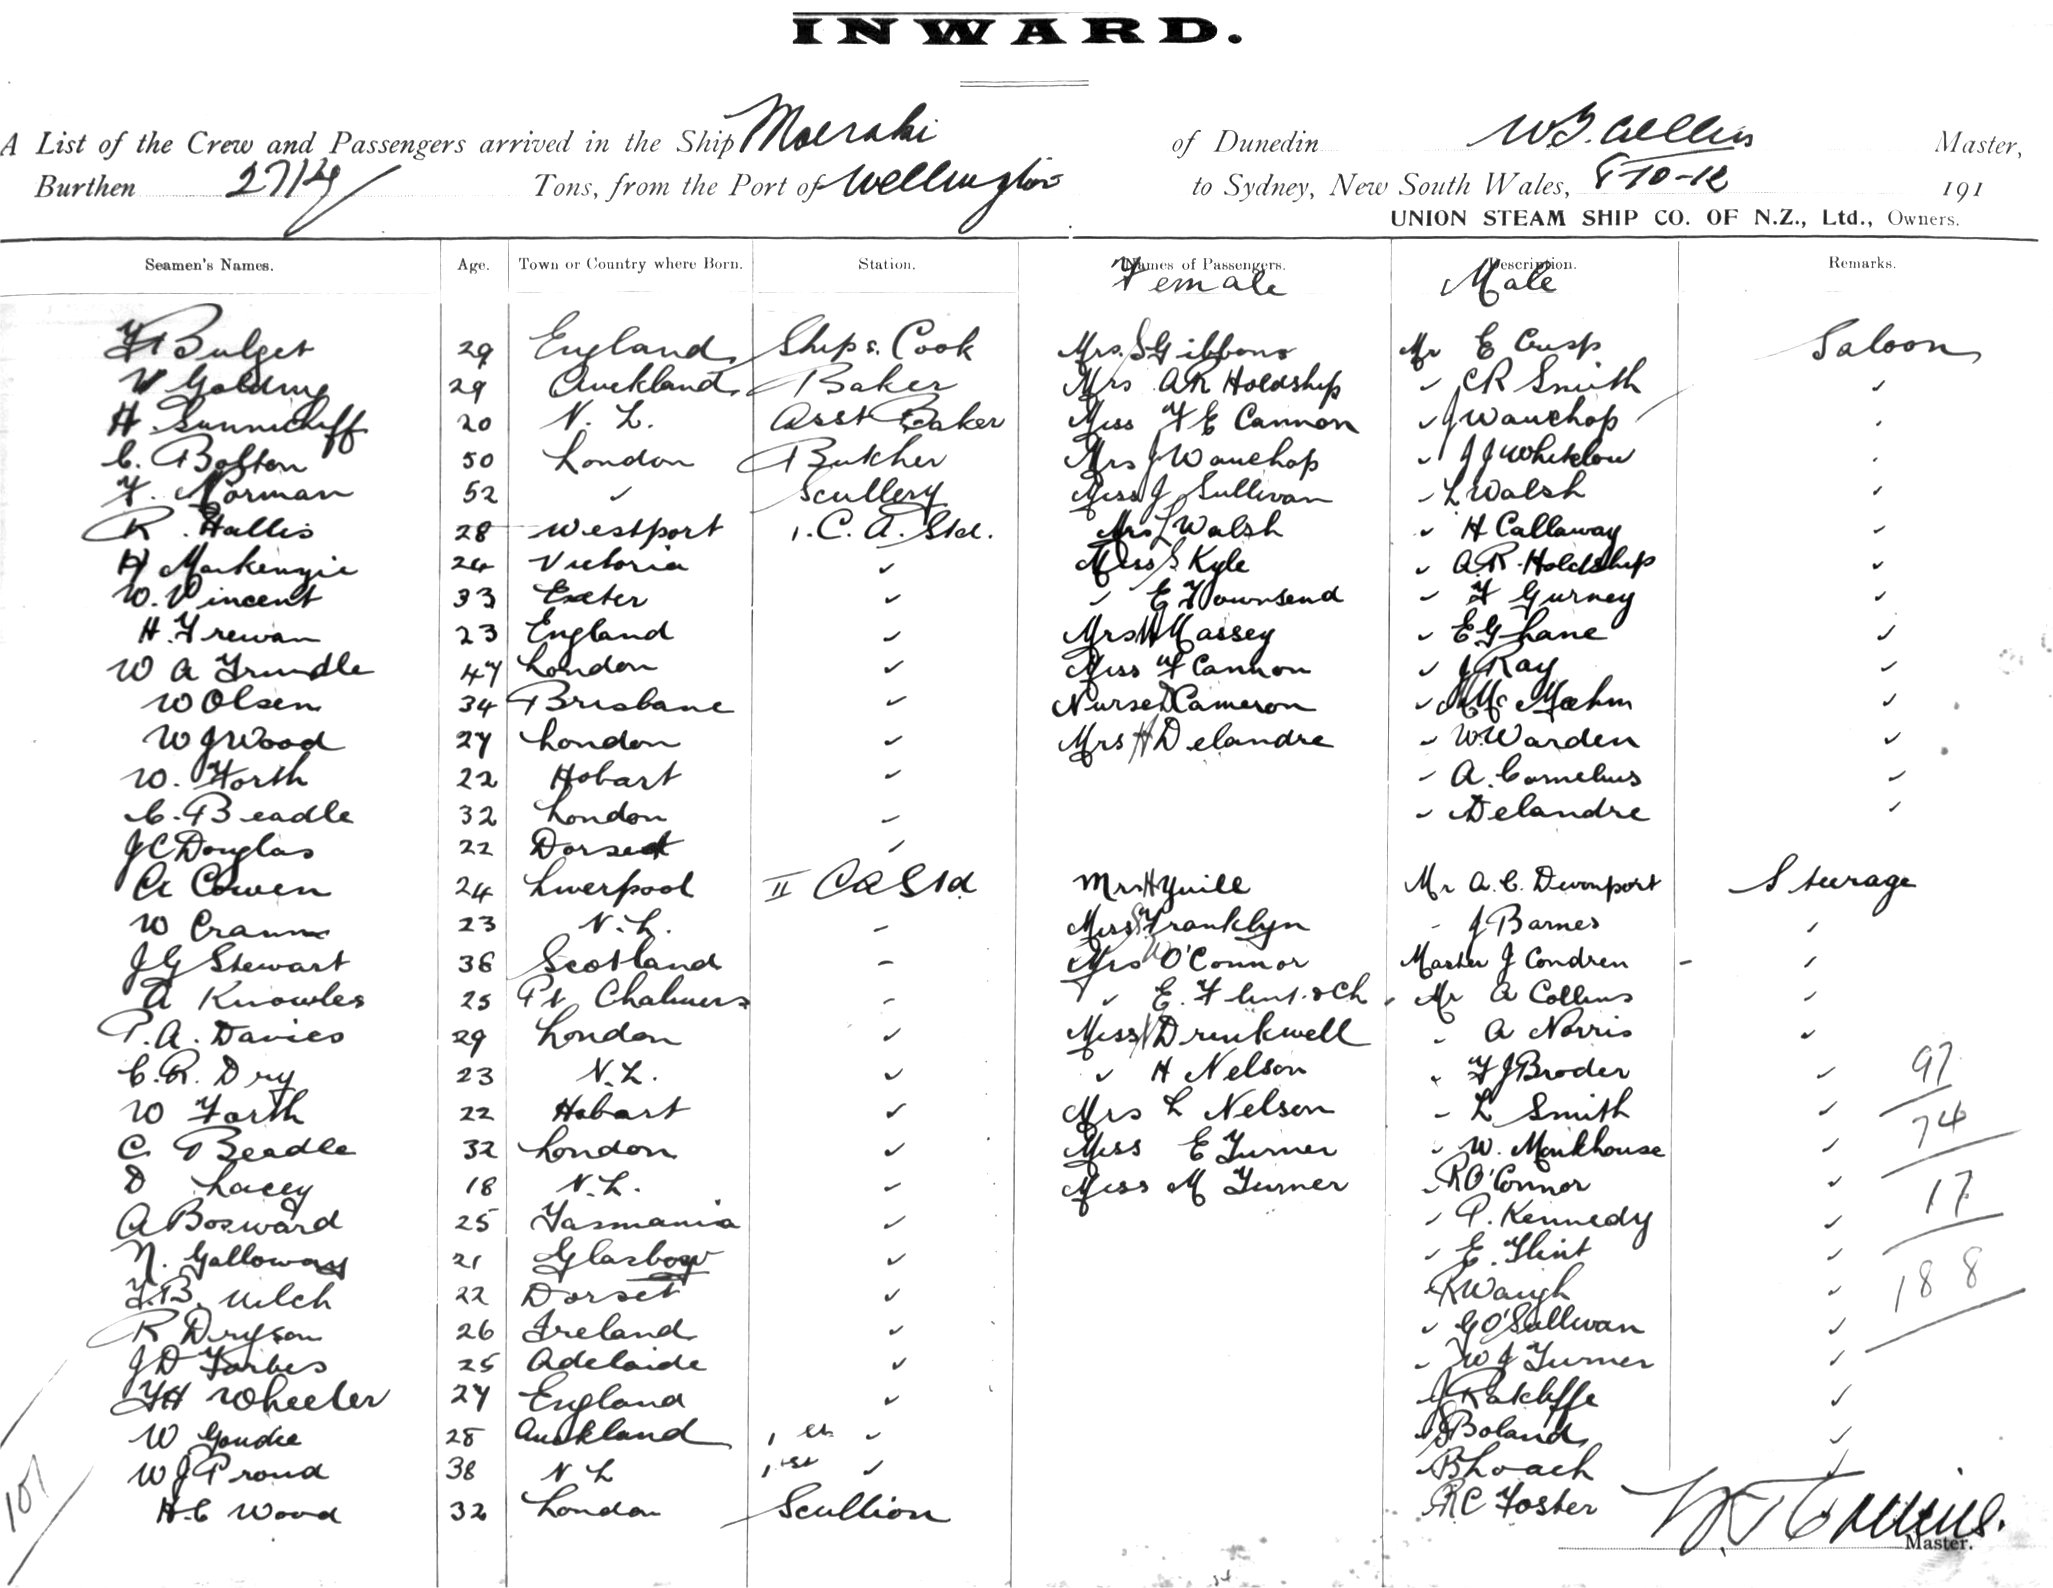 INWARD.
A List of the Crew and Passengers arrived in the Ship Moeraki of Dunedin W J Collins Master,
Burthen 2714 Tons, from the Port of Wellington to Sydney, New South Wales, 8-10-12 191
UNION STEAM SHIP CO. OF N.Z., Ltd., Owners.
Seamen's Names. Age. Town or Country where Born. Station. Names of Passengers. Description. Remarks.
Female Male
Bulget 29 England Ships. Cook Mrs. S Gibbons Mr E Cusp Saloon
V Golding 29 Auckland Baker Mrs AR Holdship " CR Smith "
H 20 N. Z. Asst Baker Miss F E Cannon " J Wauchop "
C. Bolton 50 London Butcher Mrs J Wauchop " J J Whitelow "
F. Norman 52 " Scullery Miss J Sullivan " L Walsh "
R. Hallis 28 Westport 1. C. A. Std. Mrs L Walsh " H Callaway "
H Mackenzie 24 Victoria " Miss S Kyle " A.R. Holdship "
W. Vincent 33 Exeter " " E Townsend " F Gurney "
H. Frewan 23 England " Mrs W Massey " E G Lane "
W A Trundle 47 London " Miss F Cannon " J Ray "
W Olsen 34 Brisbane " Nurse D Cameron " Mc "
W J Wood 27 London " Mrs H Delandre " W. Warden "
W. Forth 22 Hobart " " A. Cornelius "
C. Beadle 32 London " " Delandre "
J C Douglas 22 Dorset "
A Cowen 24 Liverpool II CA Std Mrs H Yuill Mr A. C. Devonport Steerage
W Crann 23 N. Z. " Miss S Franklyn " J Barnes "
J G Stewart 36 Scotland " Mrs W O'Connor Master J Condren - "
A Knowles 25 Pt Chalmers " " E. Flint. & Ch " Mr A Collins "
P. A. Davies 29 London " Miss N Drinkwell " A Norris "
C. R. Dry 23 N. Z. " " H Nelson " F J Broder " 97
W Forth 22 Hobart " Mrs L Nelson " L Smith " 74
C. Beadle 32 London " Miss E Turner " W. Monkhouse "
D Lacey 18 N. Z. " Miss M Turner " R O'Connor " 17
A Bosward 25 Tasmania " " P. Kennedy "
N. Galloway 21 Glasgow " " E. Flint "
F. B. Milch 22 Dorset " R Waugh " 188
R Dryson 26 Ireland " " G O'Sullivan "
J D Forbes 25 Adelaide " " W J Turner "
F H Wheeler 27 England " J Ratcliffe "
W Goudie 28 Auckland 1 " J Boland "
W J Proud 38 N Z 1st " " B Loach "
H. C Wood 32 London Scullion " R C Foster
101
W. J. Collins.
Master.